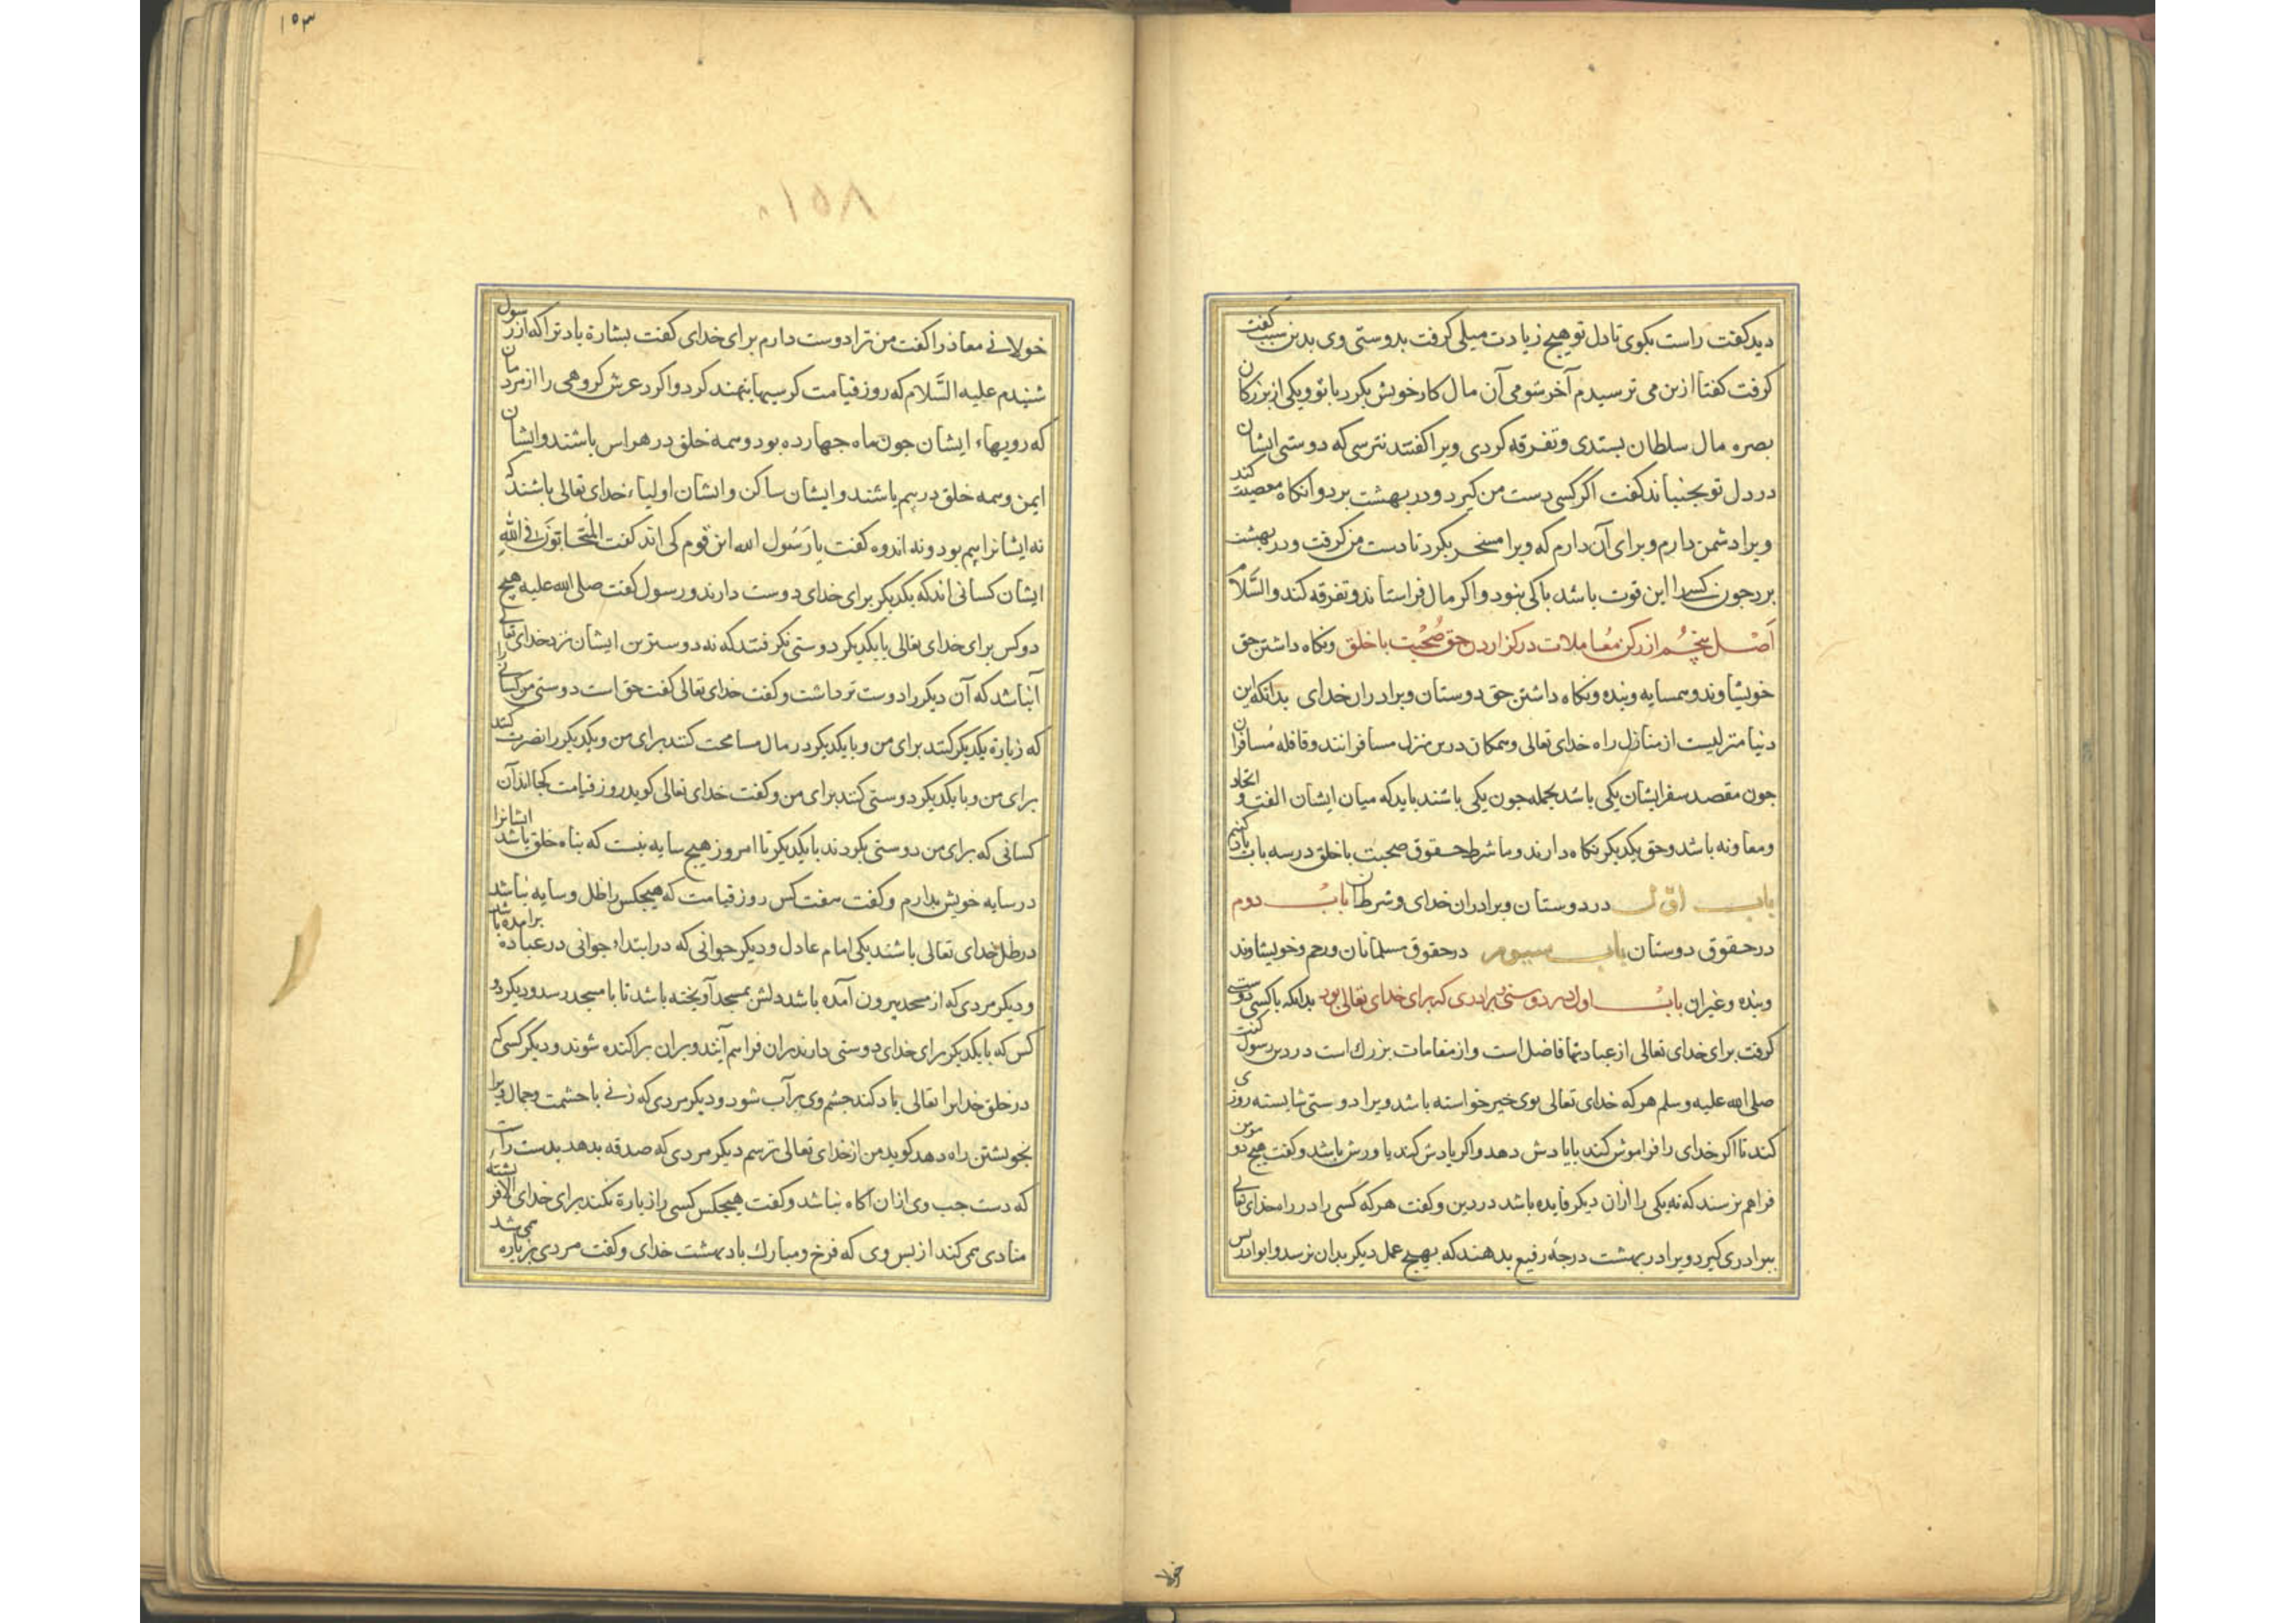 دید گفت راست بگوی تا دل تو هیچ زیادت میلی گرفت بدوستی وی بدین سبب گفت
گرفت گفتا ازین می ترسیدم آخر شومی آن مال کار خویش بکرد با تو و یکی از بزرکان
بصره مال سلطان بستدی و تفرقه کردی ویرا کفتند نترسی که دوستی ایشان
در دل تو بجنباند کفت اکر کسی دست من کیرد و در بهشت برد و انکاه معصیت کند
ویرا دشمن دارم و برای آن دارم که ویرا مسخر بکرد تا دست من کرفت و در بهشت
برد جون کسیرا این قوت باشد باکی نبود و اکر مال فرا ستاند و تفرقه کند والسّلام
اَصْل پنجُم از رکن مُعاملات در کزاردن حق صُحْبت با خلق و نکاه داشتن حق
خویشاوند و همسایه و بنده و نکاه داشتن حق دوستان و برادران خدای بدانکه این
دنیا منزلیست از منازل راه خدای تعالی و همکان درین منزل مسافرانند و قافله مُسافران
جون مقصد سفر ایشان یکی باشد بجمله جون یکی باشند باید که میان ایشان الفت و اتحاد
و معاونه باشد و حق یکدیکر نکاه دارند و ما شرط حقوق صحبت با خلق در سه باب یاد کنیم
باب اوّل در دوستان و برادران خدای و شرط آن بابْ دوم
در حقوق دوستان باب سیوم در حقوق مسلمانان و رحم و خویشاوند
و بنده و غیران بابْ اول در دوستی و برادری که برای خدای تعالی بود بدانکه با کسی دوستی
کرفت برای خدای تعالی از عبادتها فاضل است و از مقامات بزرك است در دین رسول کفت
صلی الله علیه وسلم هر که خدای تعالی بوی خیر خواسته باشد ویرا دوستی شایسته روزی
کند تا اکر خدای را فراموش کند بایادش دهد و اکر یادش کند یاورش باشد و کفت هیچ دو مومن
فراهم نرسند که نه یکی را ازان دیکر فایده باشد در دین و کفت هر که کسی را در راه خدای تعالی
ببرادری کیرد ویرا در بهشت درجهٔ رفیع بدهند که بهیچ عمل دیکر بدان نرسد و ابوادریس
خولا
۱۵۳
خولانی معاذ را کفت من ترا دوست دارم برای خدای کفت بشارة باد ترا که از رسول
شنیدم علیه السَّلام که روز قیامت کرسیها بنهند کرد واکرد عرش کروهی را از مردمان
که رویهاء ایشان جون ماه جهارده بود و همه خلق در هراس باشند و ایشان
ایمن و همه خلق در بیم باشند و ایشان ساکن و ایشان اولیاء خدای تعالی باشند که
نه ایشانرا بیم بود و نه اندوه کفت یا رَسُول الله این قوم کی اند کفت المُتَحَابّوُنَ فی اللهِ
ایشان کسانی اند که یکدیکر برای خدای دوست دارند و رسول کفت صلی الله علیه هیچ
دو کس برای خدای تعالی با یکدیکر دوستی نکرفتند که نه دوسترین ایشان نزد خدای تعالی
آنباشد که آن دیکر را دوست تر داشت و کفت خدای تعالی کفت حق است دوستی من کسانی را
که زیارة یکدیکر کنند برای من و با یکدیکر در مال مسامحت کنند برای من و یکدیکر را نصرت کنند
برای من و با یکدیکر دوستی کنند برای من و کفت خدای تعالی کوید روز قیامت کجااند آن
کسانی که برای من دوستی بکردند با یکدیکر تا امروز هیچ سایه نیست که پناه خلق باشد ایشانرا
در سایه خویش بدارم و کفت هفت کس روز قیامت که هیچکس را ظل و سایه نباشد
در ظل خدای تعالی باشند یکی امام عادل و دیکر جوانی که در ابتداء جوانی در عبادة برامده باشد
و دیکر مردی که از مسجد بیرون آمده باشد دلش بمسجد آویخته باشد تا با مسجد رسد و دیکر دو
کس که با یکدیکر برای خدای دوستی دارند بران فراهم آیند و بران براکنده شوند و دیکر کسی که
در خلق خدایرا تعالی یاد کند جشم وی برآب شود و دیکر مردی که زنی با حشمت و جمال ویرا
بخویشتن راه دهد کوید من از خدای تعالی ترسم دیکر مردی که صدقه بدهد بدست راست
که دست جب وی ازان آکاه نباشد و کفت هیچکس کسی را زیارة نکند برای خدای الا فریشته
منادی می کند از بس وی که فرخ و مبارك باد بهشت خدای و کفت مردی بزیارة می شد